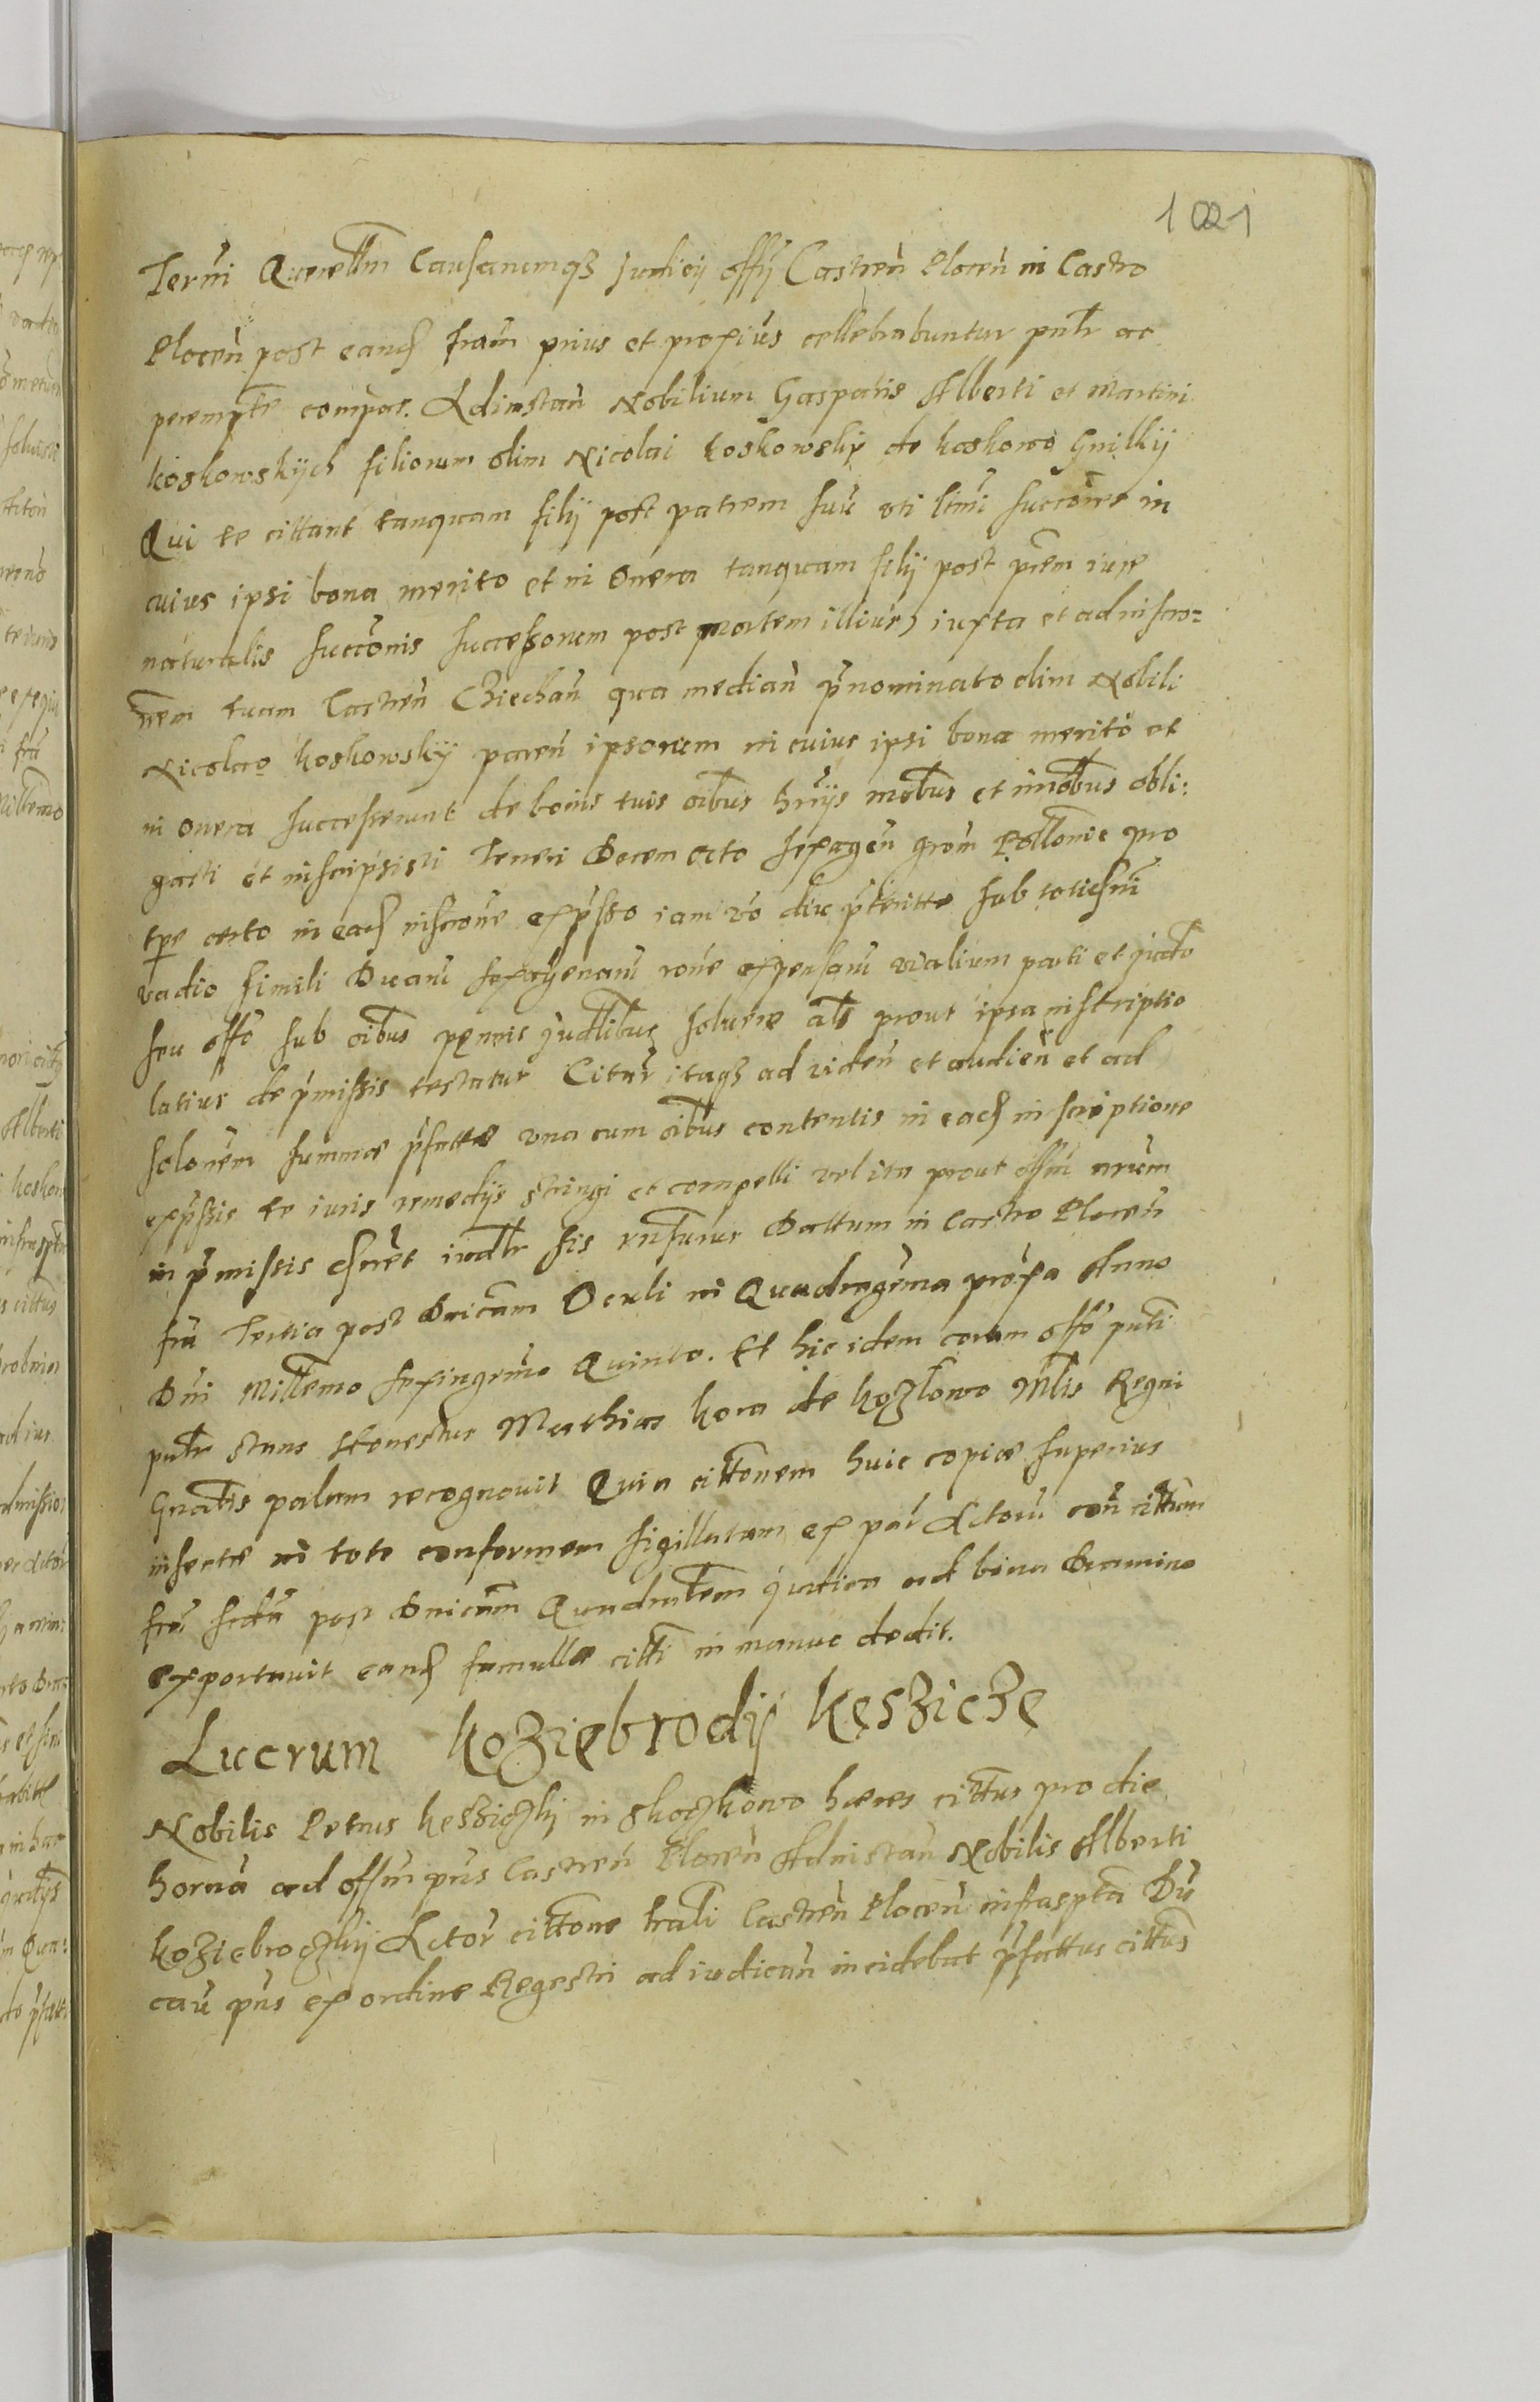 1021
Termi Querellm Causarumqȝ Judicij offij Castren̄ Plocen̄ in Castro
Plocen̄ post eand fram prius et proxius cellebrabuntur pntr ac
perempte compar. Adinstan̄ Nobilium Gasparis Alberti et Martini
Koskowskijch filiorum olim Nicolai Koskowskij de Koskowo Gnilkij
Qui te cittant tanquam filij post patrem suū uti ltmi succōres in
cuius ipsi bona merito et in onera tanquam filij post prēm iure
naturalis succōnis successorum post mortem illius) iuxta et ad inscro=
nem tuam Castren̄ Ciechan̄ qua median̄ pnominato olim Nobili
Nicolao Koskowskij paren̄ ipsorum in cuius ipsi bona merito et
in onera successerunt de bonis tuis oībus hrijs mobus et imobus obli:
gasti et inscripsisti teneri Decem octo sexagen̄ grom Pollonic pro
tpe certo in ead inscrone expsso iam vo diu pteritto sub totidem
vadio simili Duarū sexagenarū rōne expensarū vialium parti et judo
seu offo sub oibus pęnis judlibus solvere als prout ipsa inscriptio
latius de pmissis testatur Citār itaqȝ ad viden̄ et audien̄ et ad
solonem summæ pfattæ una cum oibus contentis in ead inscriptione
expssis te iuris remedijs stringi et compelli vel ita prout offm nrum
in pmissis drnet iudlr sis rnsurus Dattum in Castro Plocen̄
fra Tertia post Dnicam Oculi in Quadragēma proxa Anno
Dni Millemo sexingemo Quinto. Et hic idem coram offo pnti
pntr stans Honestus Mathias Kora de Kozlowo Mlis Regni
Gnalis palam recognovit Quia cittonem huic copiæ superius
insertæ in toto conformem sigillatam ex par Actorū con̄ cittum
fra secda post Dnicam Quadralem jurtica ad bona Dramino
exportavit eand famullæ citti in manus dedit.
Lucrum Koziebrodij Kęszicze
Nobilis Petrus Kęsziczkij in Skoczkowo hæres cittus pro die
horna ad offm pns Castren̄ Plocen̄ Adinstan̄ Nobilis Alberti
Koziebroczkij Actor cittone trali Castren̄ Plocen̄ infrasptа Dū
cau pns ex ordine Regestri ad iudican̄ incidebat pfattus cittus